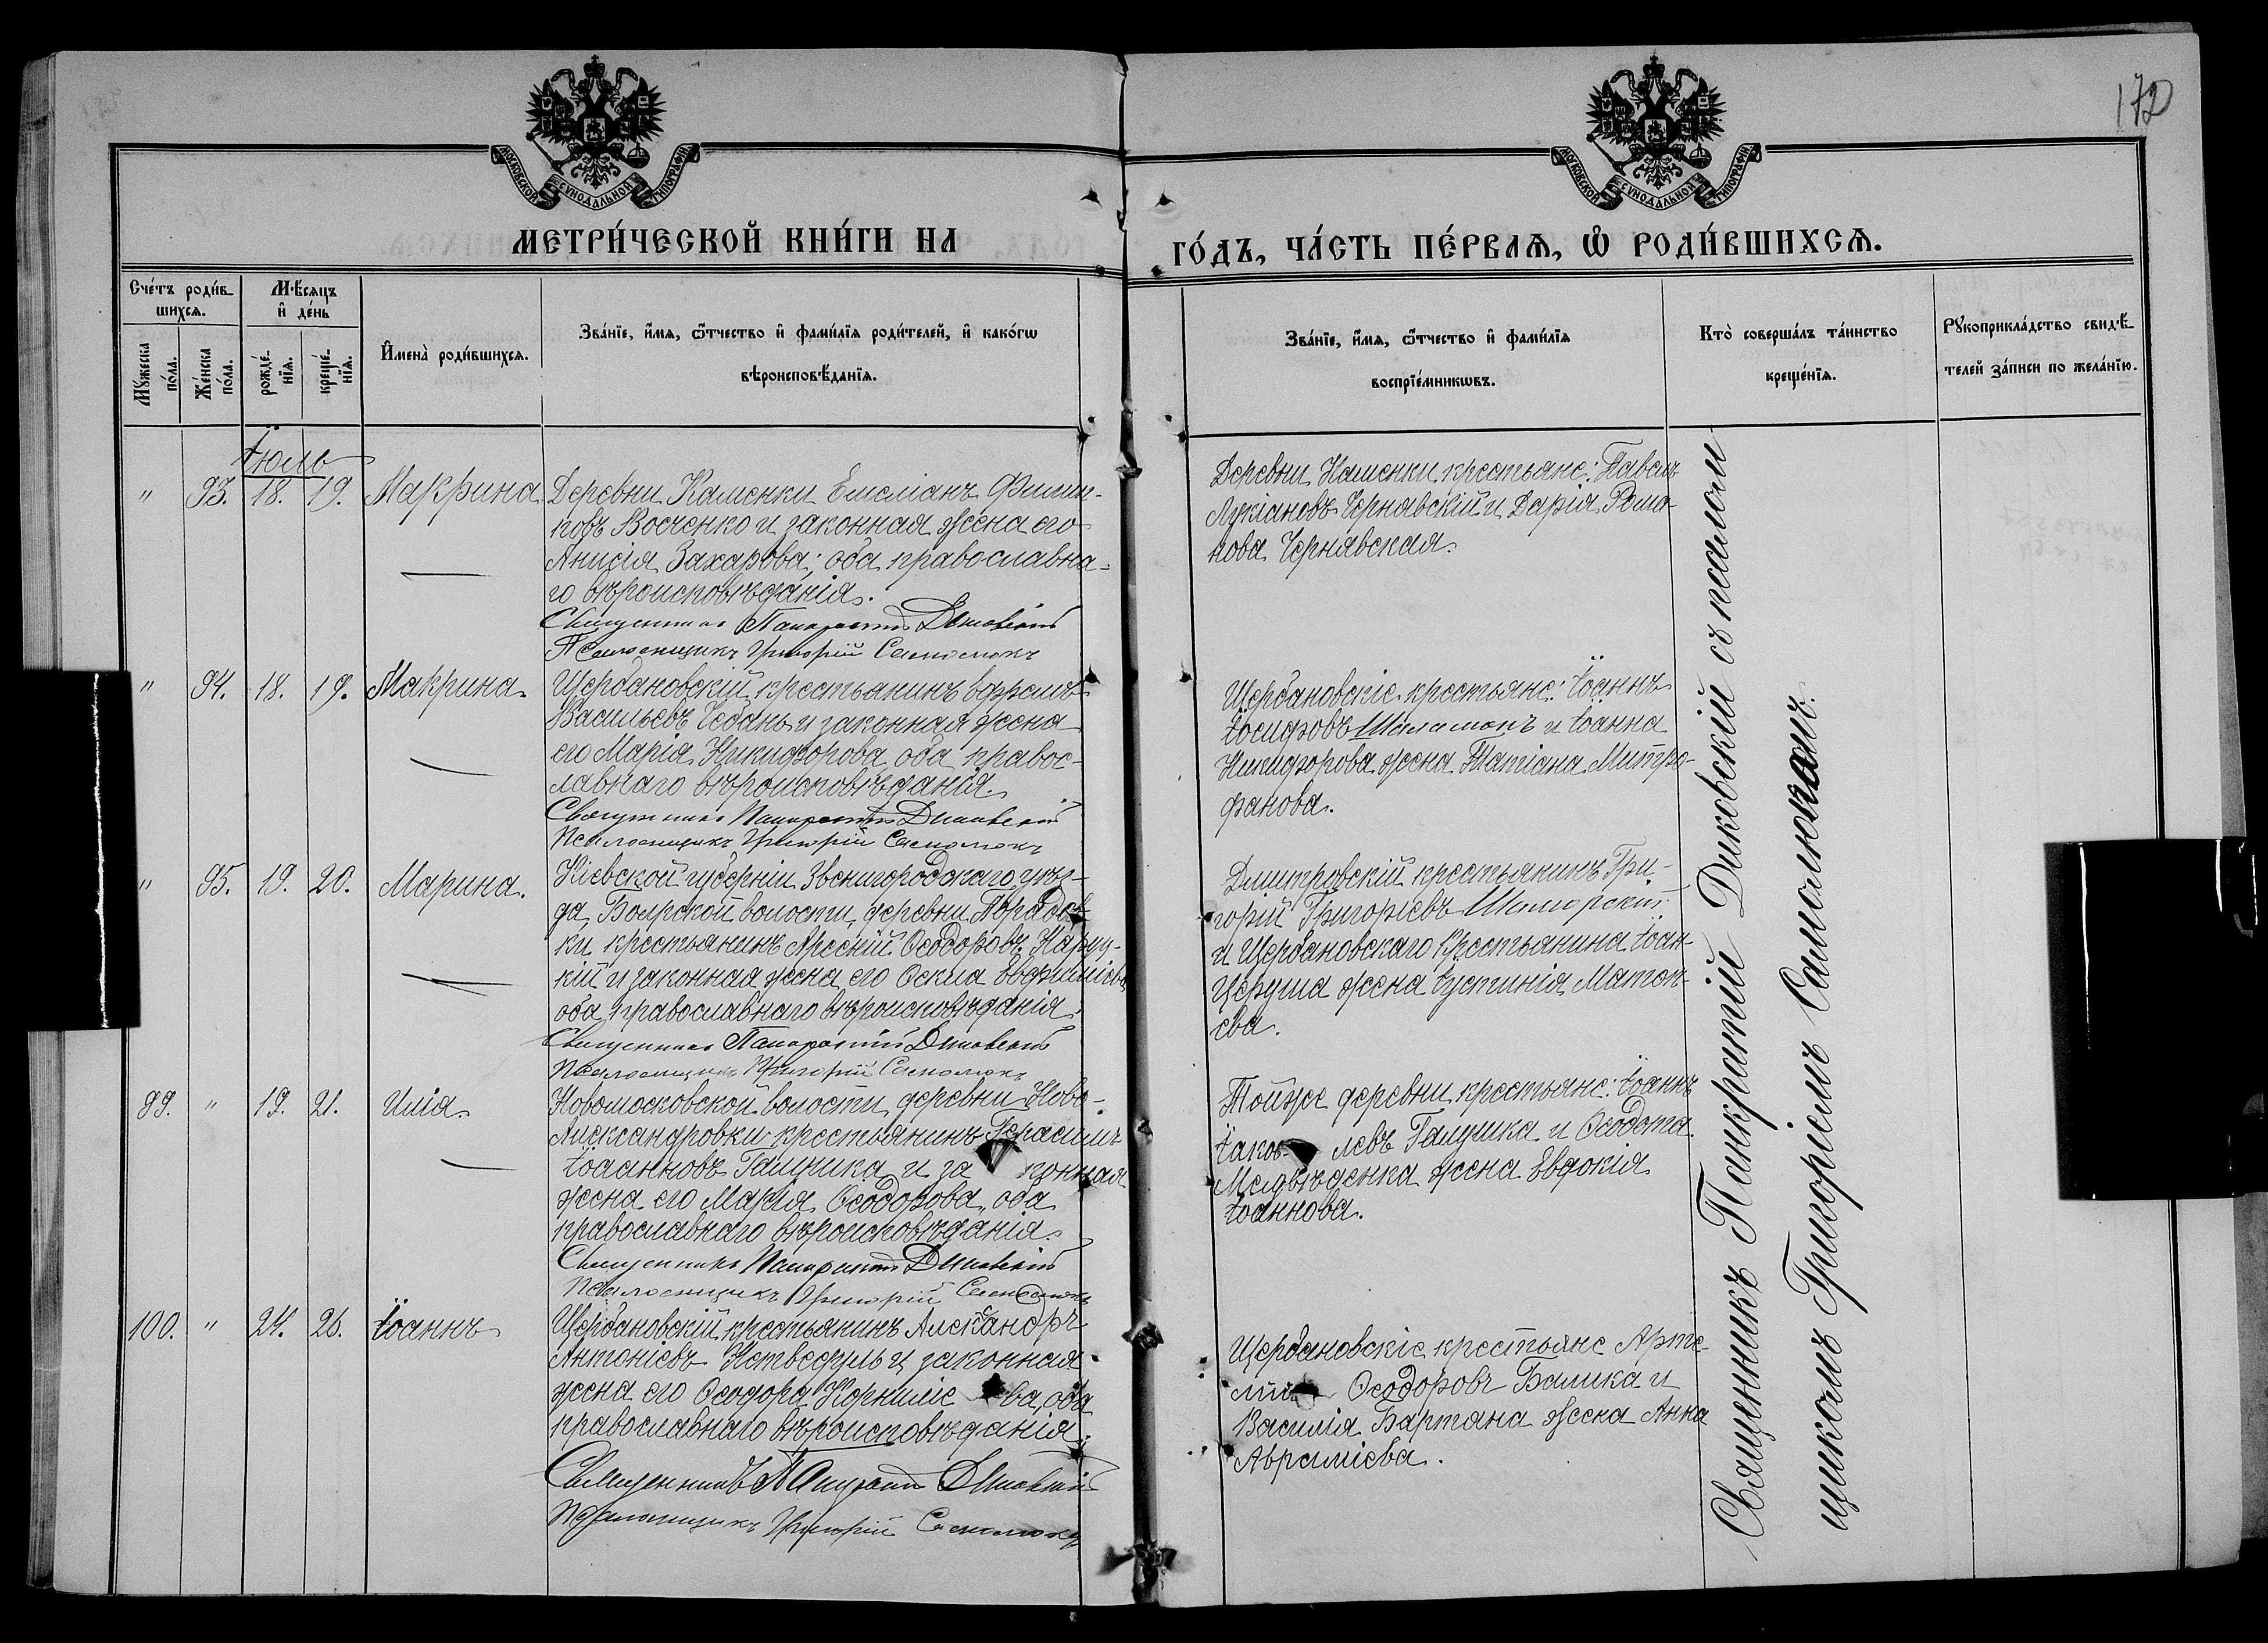 172
МОСКОВСКОЙ СѴНОДАЛЬНОЙ ТИПОГРАФІИ
МОСКОВСКОЙ СѴНОДАЛЬНОЙ ТИПОГРАФІИ
МЕТРИ́ЧЕСКОЙ КНИ́ГИ НА
ГО́ДЪ, ЧА́СТЬ ПЕ́РВАѦ, Ѡ҆ РОДИ́ВШИХСѦ.
Сче́тъ роди́в-
шихсѧ.
Мꙋжеска по́ла.
Же́нска по́ла.
Мѣ́сѧцъ и҆ де́нь
рожде́-
нїѧ.
креще́-
нїѧ.
И҆мена̀ роди́вшихсѧ.
Зва́нїе, и҆́мѧ, ѻ҆́тчество и҆ фами́лїѧ роди́телей, и҆ како́гѡ
вѣроисповѣ́данїѧ.
Зва́нїе, и҆́мѧ, ѻ҆́тчество и҆ фами́лїѧ
воспрїе́мникѡвъ.
Кто̀ соверша́лъ та́инство
креще́нїѧ.
Рꙋкоприкла́дство свидѣ́-
телей за́писи по жела́нїю.
Іюль
" 93. 18. 19. Макрина
Деревни Каменки Емеліанъ Филип-
повъ Восченко и законная жена его
Анисія Захарова; оба православна-
го вѣроисповѣданія.
Священникъ Панкратій Диковскій
Псаломщикъ Григорій Самолюкъ
Деревни Каменки крестьяне: Павелъ
Лукіановъ Чернявскій и Дарія Рома-
нова Чернявская.
" 94. 18. 19. Макрина.
Щербановскій крестьянинъ
Васильевъ Чебанъ и законная жена
его Марія Никифорова, оба правос-
лавнаго вѣроисповѣданія.
Священникъ Панкратій Диковскій
Псаломщикъ Григорій Самолюкъ
Щербановскіе крестьяне: Іоаннъ
Іосифовъ и Іоанна
Никифорова жена Татіана Митро-
фанова.
" 95. 19. 20. Марина.
Кіевской губерніи Звенигородскаго уѣз-
да Боярской волости, деревни
ки крестьянинъ Арсеній Ѳеодоровъ
кій и законная жена его Евфиміева
оба православнаго вѣроисповѣданія.
Священникъ Панкратій Диковскій
Псаломщикъ Григорій Самолюкъ
Дмитровскій крестьянинъ Гри-
горій Григоріевъ
и Щербановскаго крестьянина Іоан-
Церуша жена Іустинія Матѳ-
ева.
99. " 19. 21. Илія.
Новомосковской волости, деревни Ново-
Александровки крестьянинъ Герасимъ
Іоанновъ Галушка и законная
жена его Марія Ѳеодорова, оба
православнаго вѣроисповѣданія.
Священникъ Панкратій Диковскій
Псаломщикъ Григорій Самолюкъ
Тойже деревни крестьяне: Іоаннъ
Іаковлевъ Галушка и Ѳеодота
Медвѣденка жена Евдокія
Іоаннова.
100. " 24. 26. Іоаннъ
Щербановскій крестьянинъ Александръ
Антоніевъ и законная
жена его Ѳеодора Корниліева, оба
православнаго вѣроисповѣданія.
Священникъ Панкратій Диковскій
Псаломщикъ Григорій Самолюкъ
Щербановскіе крестьяне Арте-
мій Ѳеодоровъ Балика и
Василія Бартана жена Анна
Авраміева.
Священникъ Панкратій Диковскій съ псалом
щикомъ Григоріемъ Самолюкомъ.